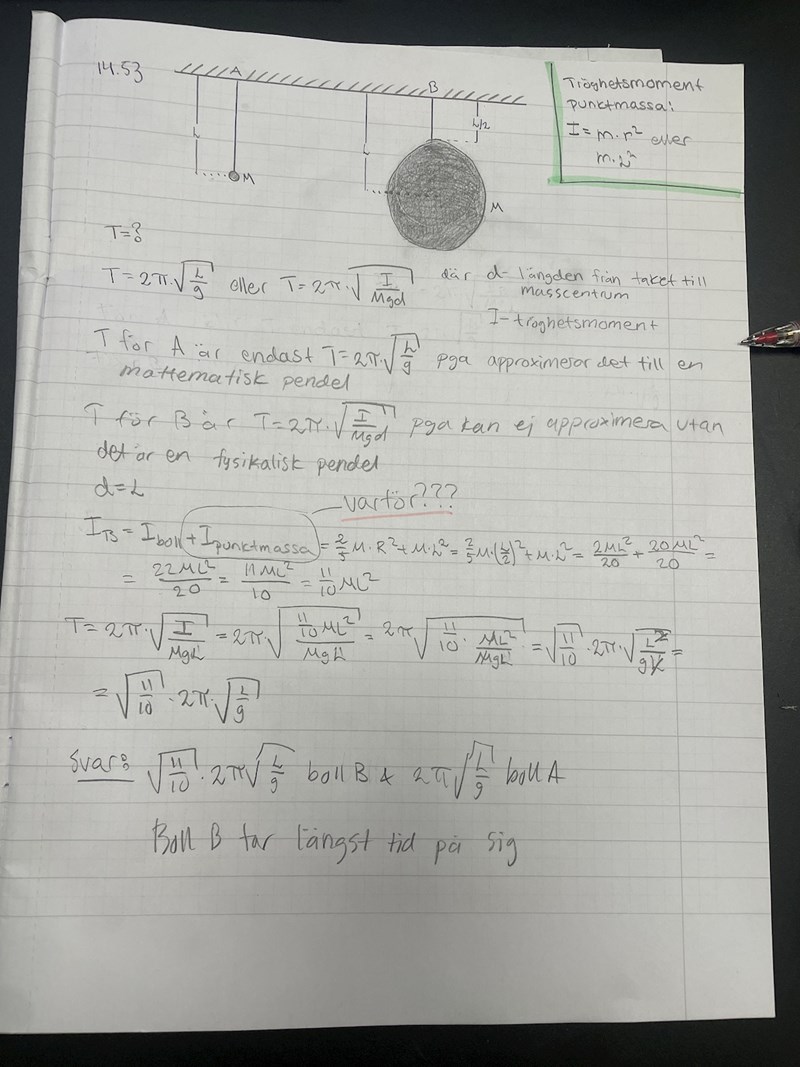 14.53
A
B
L
M
L
L/2
M
Tröghetsmoment
punktmassa:
I = m·r² eller
m·L²
T=?
T = 2π·√(L/g) eller T = 2π·√(I/Mgd) där d - längden från taket till
masscentrum
I - tröghetsmoment
T för A är endast T = 2π·√(L/g) pga approximerar det till en
mattematisk pendel
T för B är T = 2π·√(I/Mgd) pga kan ej approximera utan
det är en fysikalisk pendel
d = L
varför???
I_B = I_boll + I_punktmassa = 2/5 M·R² + M·L² = 2/5 M·(L/2)² + M·L² = 2ML²/20 + 20ML²/20 =
= 22ML²/20 = 11ML²/10 = 11/10 ML²
T = 2π·√(I/MgL) = 2π·√(11/10 ML²/MgL) = 2π √(11/10 · ML²/MgL) = √(11/10) · 2π·√(L²/gL) =
= √(11/10) · 2π·√(L/g)
Svar: √(11/10) · 2π√(L/g) boll B & 2π√(L/g) boll A
Boll B tar längst tid på sig